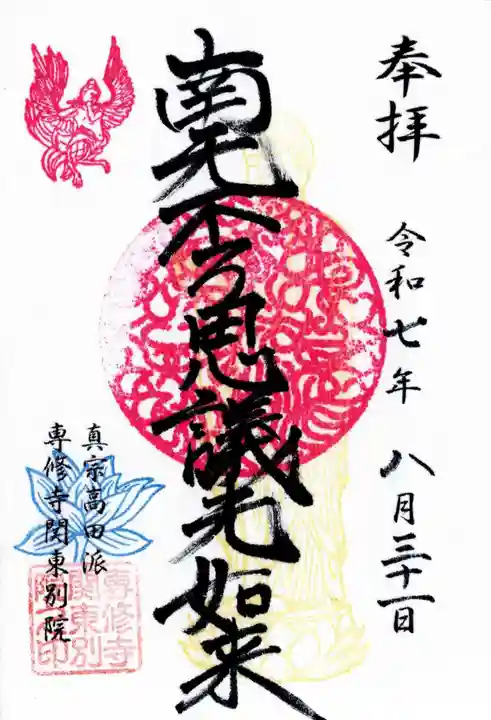 奉拝
令和七年
八月三十一日
南无不可思議光如来
真宗高田派
専修寺関東別院
専修寺
関東別
院印